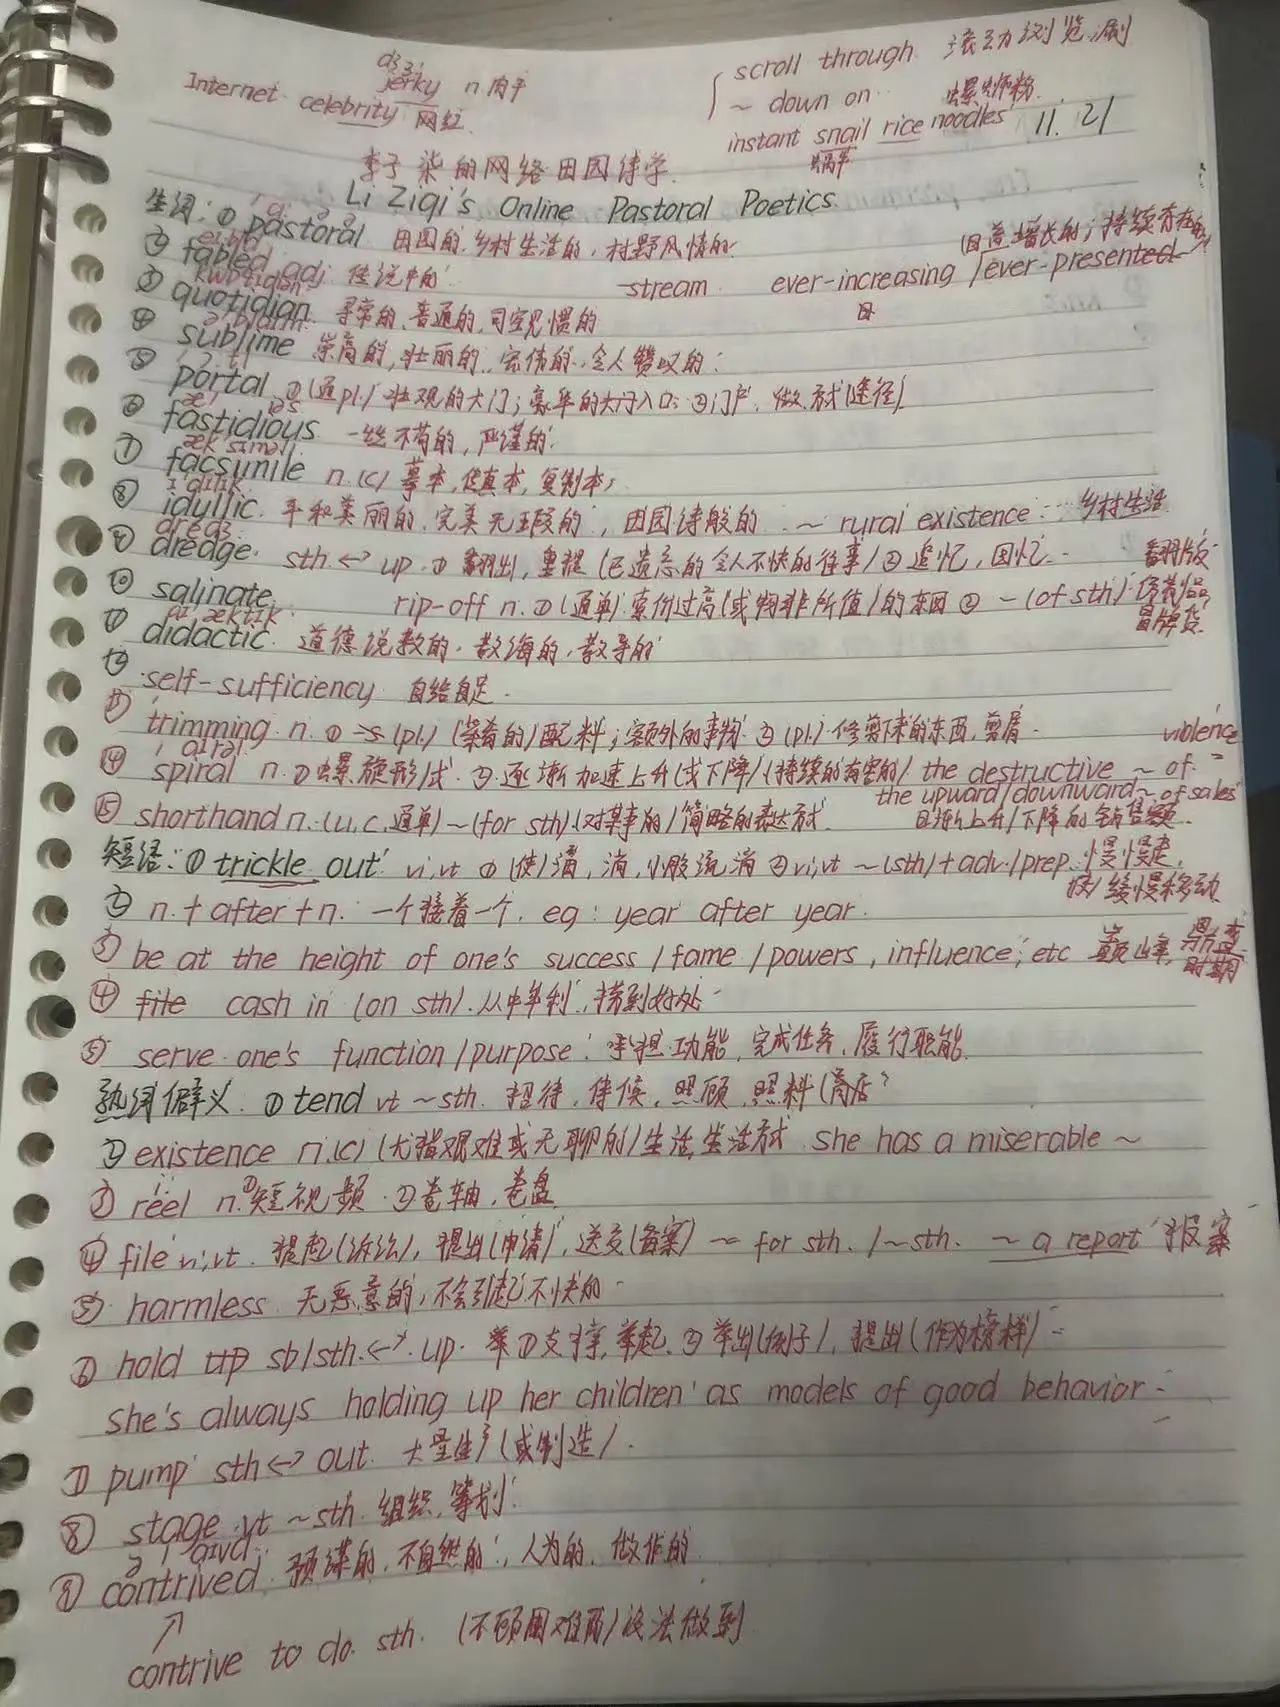 dʒɜː
jerky n.肉干
Internet celebrity 网红
scroll through 滚动浏览,刷
~ down on
螺蛳粉
instant snail rice noodles
蜗牛
11.21
李子柒的网络田园诗学
Li Ziqi's Online Pastoral Poetics
生词:① pastoral 田园的,乡村生活的,村野风情的
(日益增长的;持续存在的)
② fabled adj 传说中的 stream ever-increasing / ever-presented
③ quotidian 寻常的,普通的,司空见惯的 日
④ sublime 崇高的,壮丽的,宏伟的,令人赞叹的
⑤ portal ①(通pl.)壮观的大门;豪华的大门入口 ②门户,做方式(途径)
⑥ fastidious 一丝不苟的,严谨的
⑦ facsimile n.(c) 摹本,传真本,复制本
⑧ idyllic 平和美丽的,完美无瑕的,田园诗般的 ~ rural existence 乡村生活
⑨ dredge sth ↔ up ①翻出,重提(已遗忘的令人不快的往事)②追忆,回忆 翻版
⑩ salinate rip-off n.①(通单)索价过高(或物非所值)的东西 ② ~(of sth) 仿制品
冒牌货
⑪ didactic 道德说教的,教诲的,教导的
⑫ self-sufficiency 自给自足
⑬ trimming n. ①~s (pl.) (菜肴的)配料;额外的事物 ②(pl.) 修剪下来的东西,剪屑
violence
⑭ spiral n.①螺旋形/式 ②逐渐加速上升(或下降)(持续的有害的) the destructive ~ of
the upward/downward ~ of sales
⑮ shorthand n.(u,c,通单) ~(for sth)(对某事的)简略的表达方式 日渐上升/下降的销售额
短语:① trickle out vi,vt ①(使)滴,淌,小股流淌 ②vi,vt ~(sth)+adv./prep 慢慢走,
(使)缓慢移动
② n.+after+n. 一个接着一个. eg: year after year
③ be at the height of one's success / fame / powers, influence, etc 巅峰,鼎盛
时期
④ file cash in (on sth) 从中牟利,捞到好处
⑤ serve one's function/purpose 承担功能,完成任务,履行职能
熟词僻义 ① tend vt ~sth. 招待,侍候,照顾,照料(商店)
② existence n.(c) (尤指艰难或无聊的)生活,生活方式 she has a miserable ~
③ reel n.①短视频 ②卷轴,卷盘
④ file vi,vt. 提起(诉讼),提出(申请),送交(备案) ~ for sth. / ~sth. ~ a report 报案
⑤ harmless 无恶意的,不会引起不快的
⑥ hold up sb/sth.↔up 举 ①支撑,举起 ②举出(例子),提出(作为榜样)
she's always holding up her children as models of good behavior
⑦ pump sth↔out 大量生产(或制造)
⑧ stage vt ~sth 组织,筹划
⑨ contrived 预谋的,不自然的,人为的,做作的
↗
contrive to do sth. (不顾困难而)设法做到